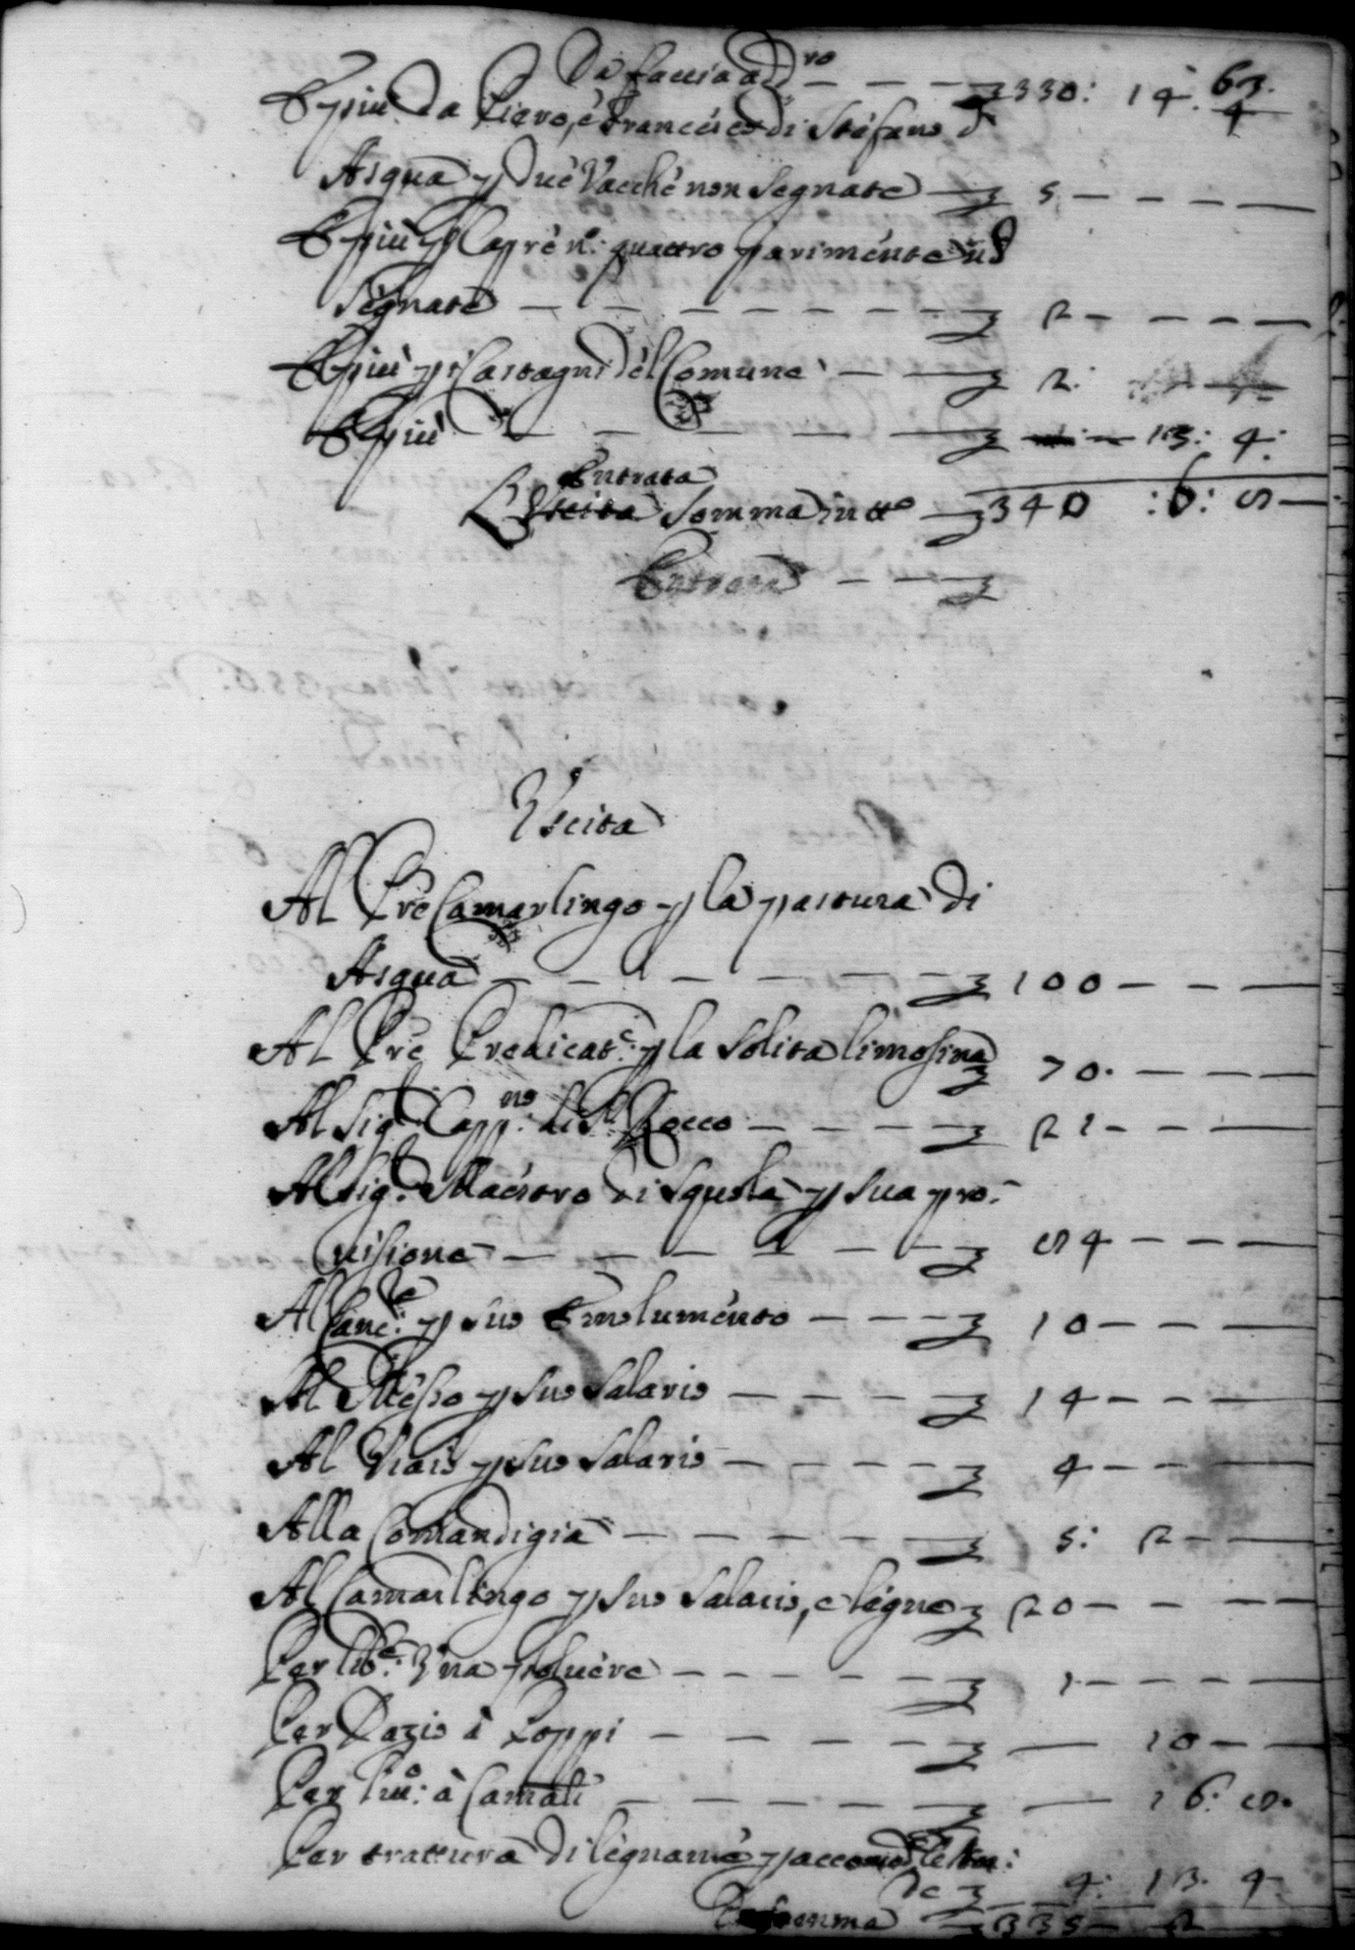 Da faccia a dro — — — £ 330: 14. 63.
4
E più da Piero, e Francesco di Stefano d'
Asqua p due Vacche non segnate — £ 5 — — —
E più p Capre no. quattro parimente nō
segnate — — — — £ 2 — — —
E più p i Castagni del Comune — — £ 2:
E più — — — — £ — 13: 4:
Entrata
L'Uscita Somma in tto — £ 340 : 6: 8 —
Entrata — — £
Uscita
Al Pre Camarlingo p la pastura di
Asqua — — — — £ 100 — — —
Al Pre Predicate. p la solita limosina £ 70. — — —
Al Sigr. Capp.no di S. Rocco — — — £ 21 — — —
Al Sigr. Maestro di Squola p sua pro-
uisione — — — — £ 84 — — —
Al Canc.re p suo Emolumento — — — £ 10 — — —
Al Messo p suo salario — — — £ 14 — — —
Al Viaio p suo salario — — — £ 4 — — —
Alla Comandigia — — — £ 5: 2 — —
Al Camarlingo p suo salario, e legne £ 20 — — —
Per libe. Una poluere — — — £ 1 — — —
Per Dazio à Poppi — — — £ — 10 — —
Per liu.o: à Camali — — — £ — 16: 8.
Per trattura di legname p accomod.
£ 4: 13. 4.
Somma £ 335 — 2 —